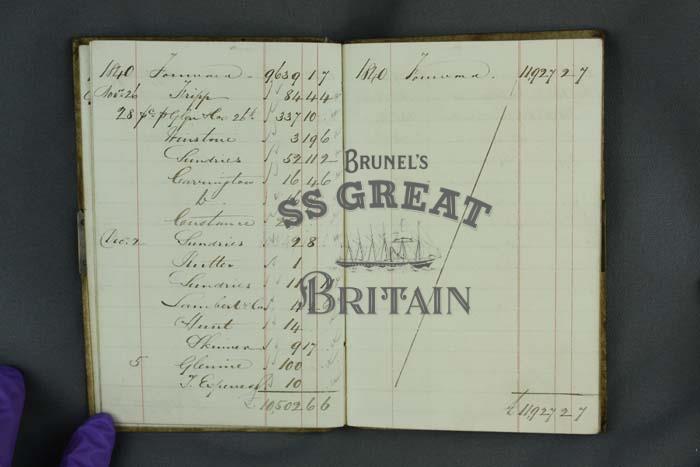 1840 Forward 9,639 1 7
Novr. 26 Tripp 84 4 4
28 Glyn & Co 26th 337 10
Winstone 3 19 6
Sundries 52 11 2
Carrington 16 4 6
Do.
Constance 2
Decr. 2 Sundries 2 8
Rutter 1
Sundries
Lambert & Co
Hunt 14
Skinner 9 17
5 Glennie 100
T. Expenses 10
£ 10,502 6 6
1840 Forward. 11,927 2 7
£ 11,927 2 7
BRUNEL'S
SS GREAT
BRITAIN